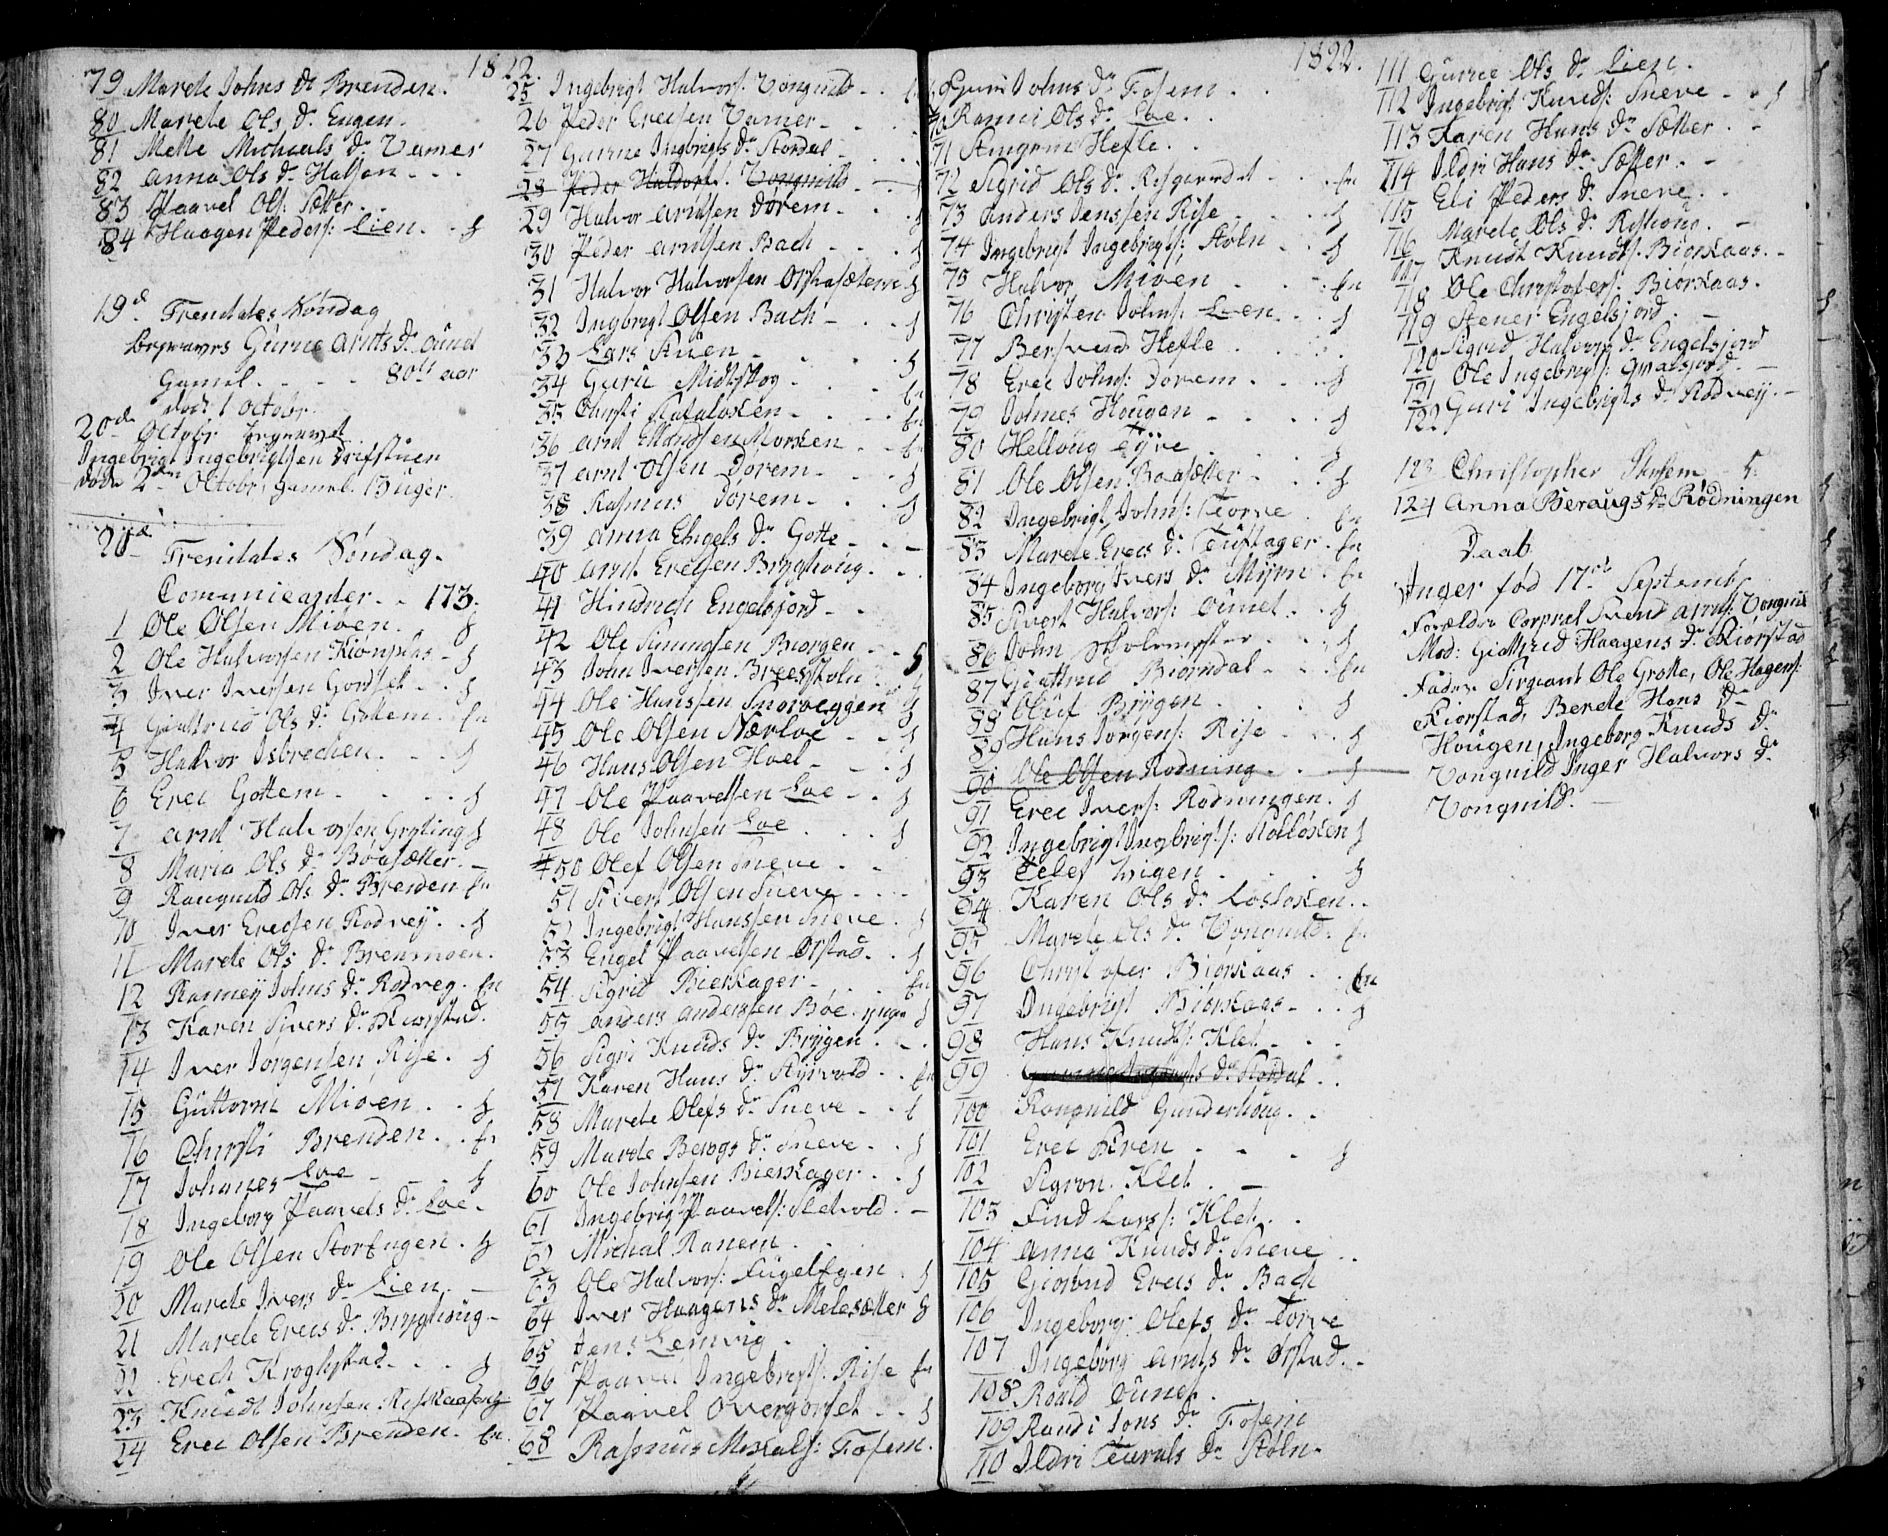 1822.
79 Marete Johns dr Brenden.
80 Marete Ols dr Engen.
81 Mette Michaels dr Vamer
82 Anna Ols dr Halsen
83 Paavel Ols: Sætter
84 Haagen Peders: Lien
19d Trenitates Söndag
begraves Gurue Arnts dr Aunet
Gamel 80 aar
död 1 Octobr.
20de Octobr begravet
Ingebrigt Ingebrigtsen Drifstuen
död 2den Octobr gamel 13 uger.
20d Trenitates Söndag.
Comunicanter 173.
1 Ole Olsen Mioen.
2 Ole Halvorsen Kiönphas
3 Iver Iversen Gordset
4 Giertrud Ols dr Gottem
5 Halvor Isbrechen
6 Erec Gottem
7 Arnt Halvorsen Gryting
8 Maria Ols dr Böasætter
9 Rangnild Ols dr Brenden
10 Iver Erecsen Rodvej
11 Marete Ols dr Brenmoen.
12 Ranneij Johns dr Rodveg
13 Karen Sivers dr Kiorstad
14 Iver Jörgensen Rise
15 Guttorm Mioen
16 Christi Brenden
17 Johanes Loe
18 Ingeborg Paavels dr Loe
19 Ole Olsen StorEngen
20 Marete Ivers dr Lien
21 Marete Erecs dr Bryghoug
22 Erech Kroghstad
23 Knudt Johnsen
24 Erec Olsen Brenden
25 Ingebrigt Halvors: Vongnild
26 Peder Erecsen Vamer
27 Gurue Ingbrigts dr Stordal
28 Peder Haldors: Vongnild
29 Halvor Arntsen Dorem
30 Peder Arntsen Bach
31 Halvor Halvorsen
32 Ingbrigt Olsen Bach
33 Lars Stuen
34 Guru Midtskog
35 Christi
36 Arnt Ellandsen Morken
37 Arnt Olsen Dörem
38 Rasmus Dörem
39 Anna Engels dr Gotte
40 Arnt Erecsen Bryghoug
41 Hindrich Engelsjord
42 Ole Simungsen Biorgen
43 John Iversen Breestoln
44 Ole Hanssen Snoroeggen
45 Ole Olsen Nærloe
46 Hans Olsen Hoel
47 Ole Paavelsen Loe
48 Ole Johnsen Loe
50 Olef Olsen Sneve
51 Sivert Olsen Sneve
52 Ingebrigt Hanssen Sneve
53 Engel Paavelsen Örstad
54 Sigrid Bierkager
55 Anders Anderssen Böe
56 Sigri Knuds dr Brygen
57 Karen Hans dr Styrvold
58 Marete Olefs dr Sneve
59 Marete Berogs dr Sneve
60 Ole Johnsen Bierkager
61 Ingebrigt Paavels: Sletvold
62 Michal Ranem
63 Ole Halvors:
64 Iver Haagens dr Melesætter
65 Jens Lemvig
66 Paavel Ingebrigts: Rise
67 Paavel Overgorset
68 Rasmus Michals: Fosem
1822.
Guru Johns dr Fosem
70 Rannei Ols dr Loe
71 Stingrim Hefle
72 Sigrid Ols dr Risgaardet
73 Anders Jenssen Rise
74 Ingebrigt Ingebrigts: Stöln
75 Halvor Mioen
76 Christen Johns: Loen
77 Bersvend Hefle
78 Erec Johns: Dorem
79 Johnes Hougan
80 Helloug Tyve
81 Ole Olsen Boasætter
82 Ingebrigt Johns: Torve
83 Marete Erecs dr Teustager
84 Ingeborg Ivers dr Myrn
85 Sivert Halvors: Aunet
86 John Skolemester
87 Giertrud Biorndal
88 Oluf Brygen
89 Hans Jorgens: Rise
90 Ole Olsen Rodning
91 Erec Ivers: Rodningen
92 Ingebrigt Ingbrigts:
93 Telef Wigen
94 Karen Ols dr
95 Marete Ols dr Vongnild
96 Christofer Biörkaas
97 Ingebrigt Biörkaas
98 Hans Knuds: Klet
99 Ingebrigts dr Stordal
100 Rongnild Gunderhoug
101 Erec
102 Sigron Klet
103 Find Lars: Klet
104 Anna Knuds dr Sneve
105 Giörtrud Erecs dr Bach
106 Ingeborg Olefs dr Torve
107 Ingeborg Arnts dr Örstad
108 Roald Aunet
109 Randi Jons dr Fosem
110 Ildri Teurals dr Stöln
111 Gurue Ols dr Lien.
112 Ingebrigt Knuds: Sneve
113 Karen Hans dr Sætter
114 Ildri Hans dr Sætter
115 Eli Peders dr Sneve
116 Marete Ols dr Riskaas
117 Knudt Knuds: Biörkaas
118 Ole Christofers: Biörkaas.
119 Stener Engelsjord
120 Sigrid Halvors dr Engelsjord
121 Ole Ingebrigts:
122 Guri Ingebrigts dr Rodveij
123 Christopher
124 Anna Beraugs dr Rödningen
Daab
Inger föd 17de Septembr
Forældre Corpral Svend Arnts: Vongnild
Mod: Giertrud Haagens dr Kiörstad
Fadere Sirgeant Ole Grotte, Ole Hagens:
Kiorstad, Berete Hans dr
Hougen, Ingeborg Knuds dr
Vongnild Inger Halvors dr
Vongnild.